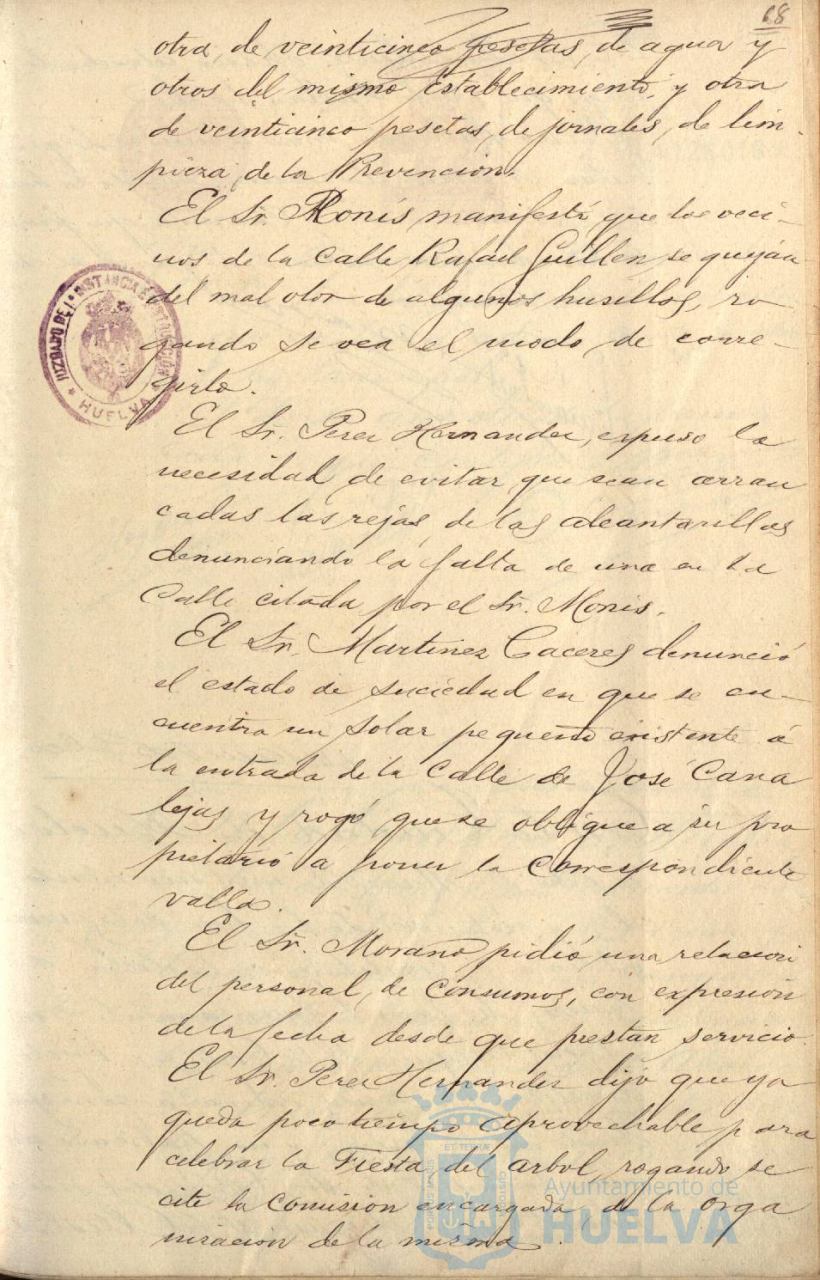 68
otra, de veinticinco pesetas, de agua y
otros del mismo establecimiento, y otra
de veinticinco pesetas, de jornales, de lim-
pieza, de la Prevención.
El Sr. Monís manifestó que los veci-
nos de la Calle Rafael Guillen se quejan
del mal olor de algunos husillos, ro
gando se vea el modo de corre-
girlo.
El Sr. Perez Hernandez, expuso la
necesidad de evitar que sean arran
cadas las rejas, de las alcantarillas
denunciando la falta de una en la
Calle citada por el Sr. Monis.
El Sr. Martinez Caceres denunció
el estado de suciedad en que se en-
cuentra un solar pequeño existente á
la entrada de la Calle de José Cana
lejas y rogó que se obligue a su pro
pietario a poner la correspondiente
valla.
El Sr. Morano pidió una relacion
del personal, de Consumos, con expresión
de la fecha desde que prestan servicio.
El Sr. Perez Hernandez dijo que ya
queda poco tiempo aprovechable para
celebrar la Fiesta del arbol rogando se
cite la Comision encargada, de la orga
nizacion de la misma.
JUZGADO DE 1ª INSTANCIA E INSTRUCCIÓN
* HUELVA *
Ayuntamiento de
HUELVA